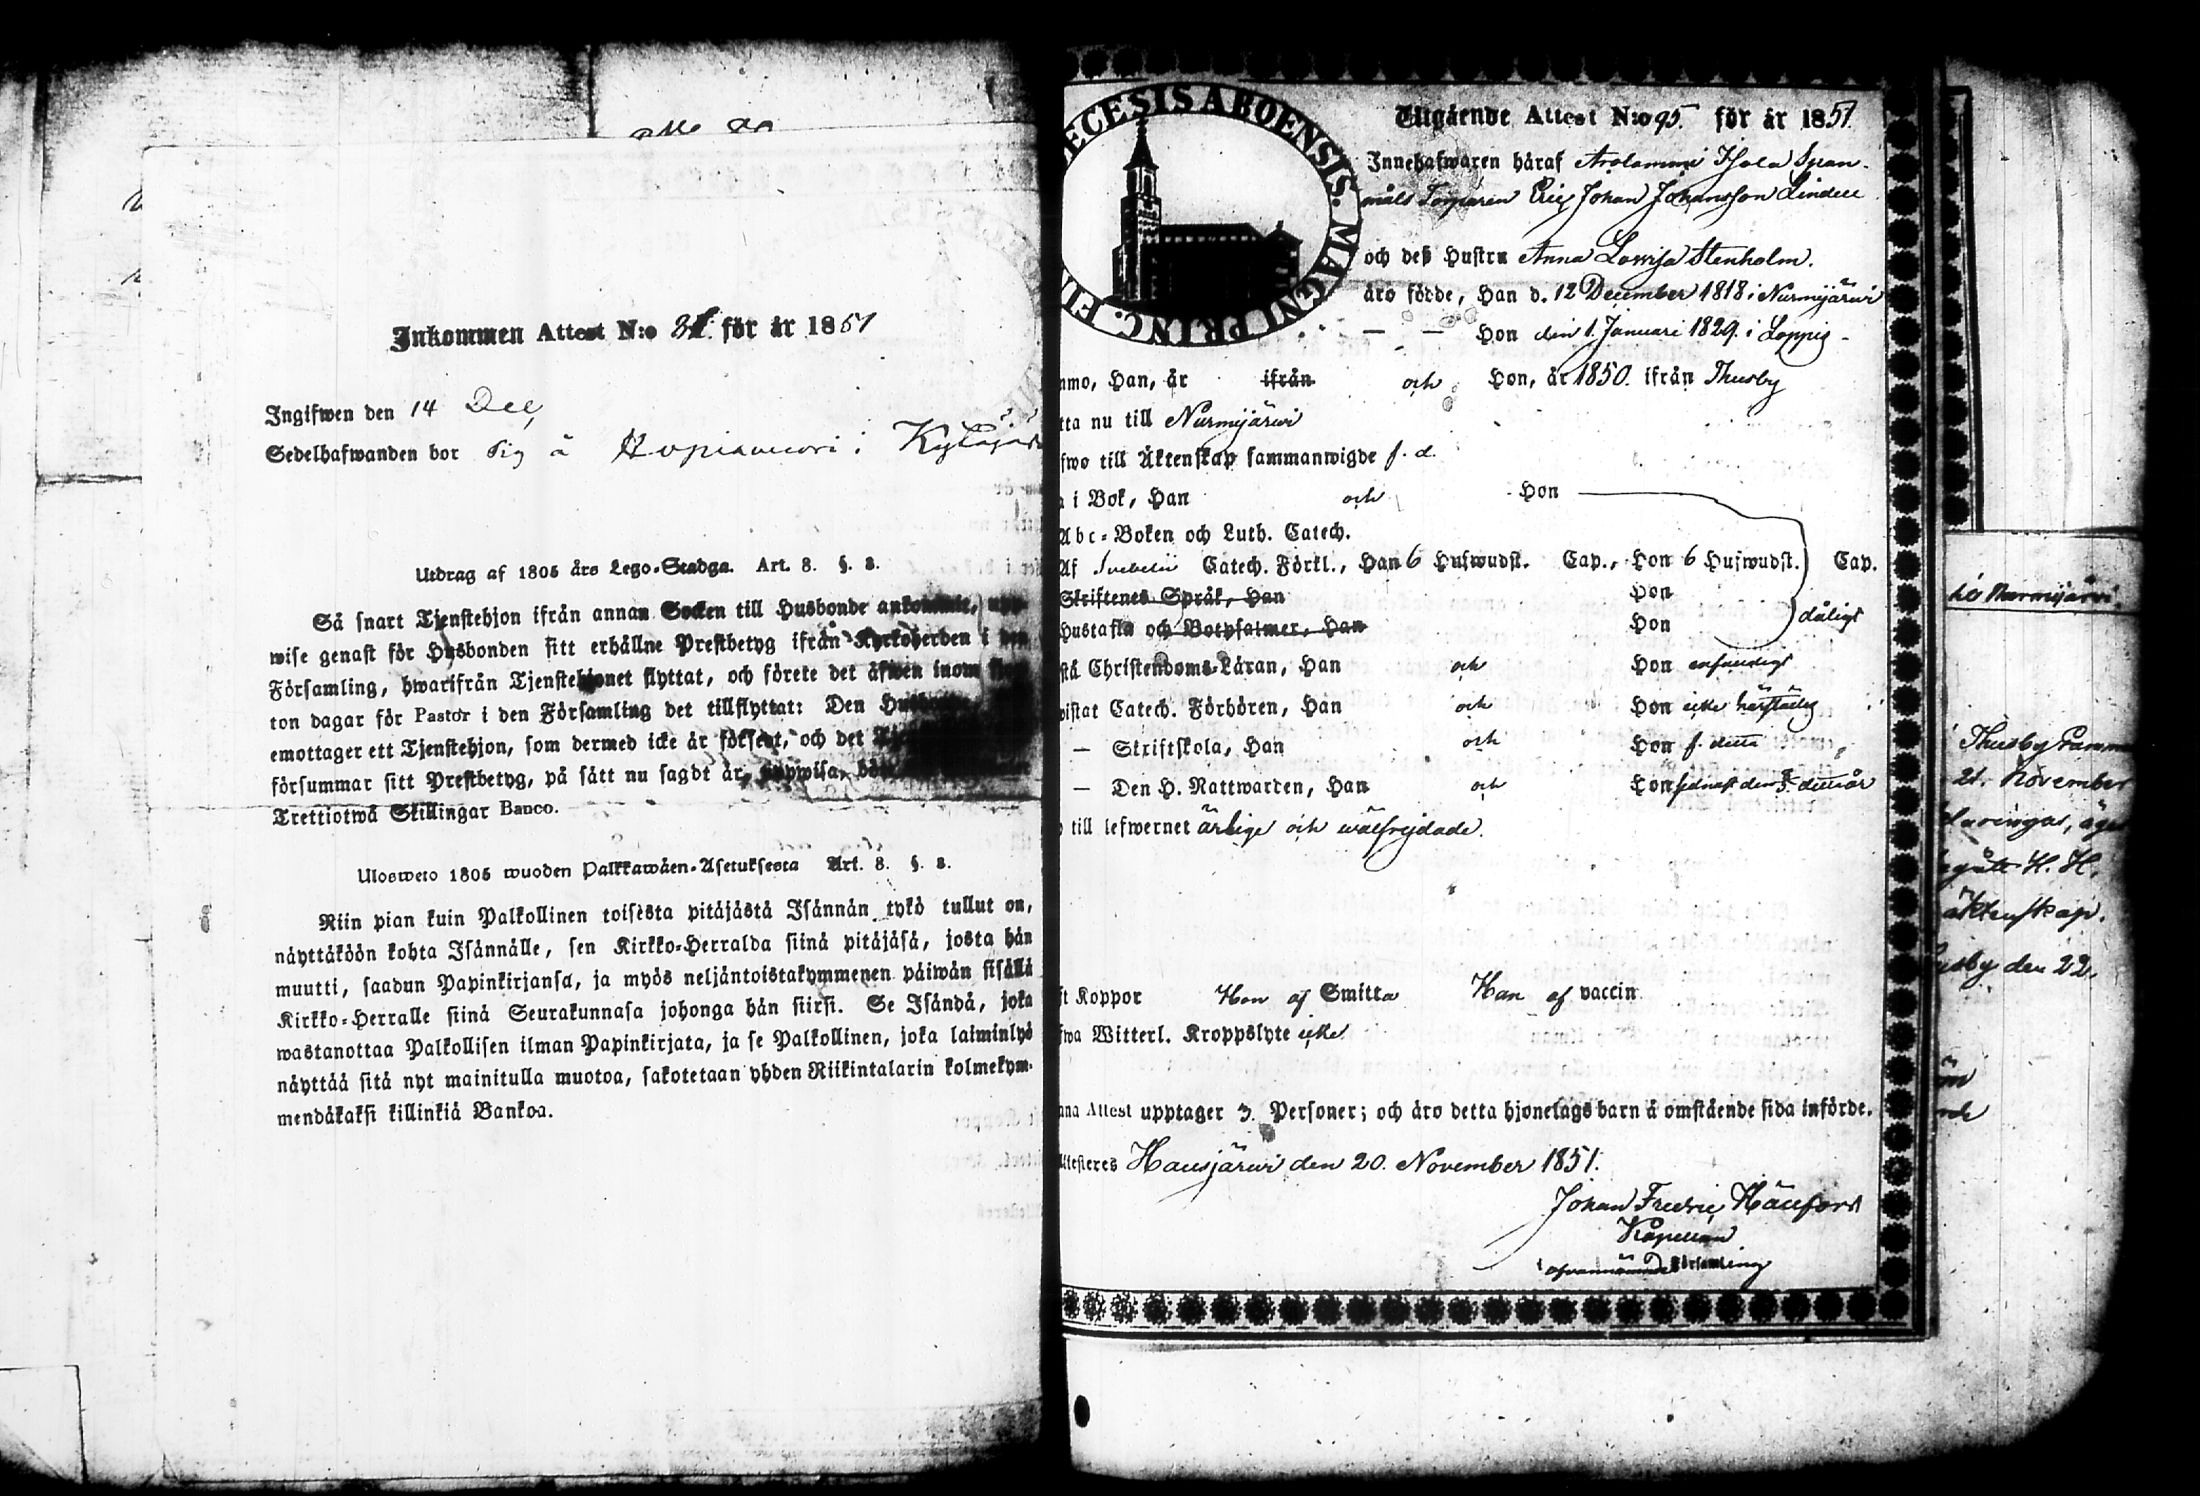 Inkommen Attest N:o för år 1851
Ingifwen den 14 Dec
Sedelhafwanden bor sig å i
Utdrag af 1805 års Lego-Stadga. Art. 8. §. 8.
Så snart Tjenstehjon ifrån annan Socken till Husbonde ankommit, upp-
wise genast för Husbonden sitt erhållne Prestbetyg ifrån Kyrkoherden i den
Församling, hwarifrån Tjenstehjonet flyttat, och förete det äfwen inom
ton dagar för Pastor i den Församling det tillflyttat: Den
emottager ett Tjenstehjon, som dermed icke är försedt, och det
försummar sitt Prestbetyg, på sätt nu sagdt är, uppwisa,
Trettiotwå Skillingar Banco.
Ulosweto 1805 wuoden Palkkawäen-Asetuksesta Art. 8. §. 8.
Niin pian kuin Palkollinen toisesta pitäjästä Isännän tykö tullut on,
näyttäköön kohta Isännälle, sen Kirkko-Herralda siinä pitäjäsä, josta hän
muutti, saadun Papinkirjansa, ja myös neljäntoistakymmenen päiwän sisällä
Kirkko-Herralle siinä Seurakunnasa johonga hän siirsi. Se Isändä, joka
wastanottaa Palkollisen ilman Papinkirjata, ja se Palkollinen, joka laiminlyö
näyttää sitä nyt mainitulla muotoa, sakotetaan yhden Riikintalarin kolmekym-
mendäkaksi killinkiä Bankoa.
ECESIS ABOENSIS. MAGNI PRINC. FIN
Utgående Attest N:o 95. för år 1851.
Innehafwaren häraf Arolammi Isola Span-
måls Torparen Eric Johan Johansson Lindell
och deß Hustru Anna Lowisa Stenholm.
äro födde, Han d. 12 December 1818 i Nurmijärwi
— — Hon den 1. Januari 1829. i Loppis
mmo, Han, år ifrån och Hon, år 1850. ifrån Thusby
tta nu till Nurmijärwi
fwo till Äktenskap sammanwigde f. d.
a i Bok, Han och Hon
Abc-Boken och Luth. Catech.
Af Svebelii Catech. Förkl., Han 6 Hufwudst. Cap., Hon 6 Hufwudst. Cap.
Skriftenes Språk, Han Hon
Hustafla och Botpsalmer, Han Hon dåligt
stå Christendoms-Läran, Han och Hon enfaldigt
wistat Catech. Förhören, Han och Hon icke
— Skriftskola, Han och Hon f. detta
— Den H. Nattwarden, Han och Hon sednast den detta år
o till lefwernet ärlige och wälfrejdade.
ft Koppor Hon af Smitta Han af vaccin
fwa Witterl. Kroppslyte icke
nna Attest upptager 3. Personer; och äro detta hjonelags barn å omstående sida införde.
Attesteras Hausjärwi den 20. November 1851.
Johan Fredric
Kapellan
i Församling
Nurmijärwi.
i Thusby
21. November
H. H.
äktenskap.
usby den 22.